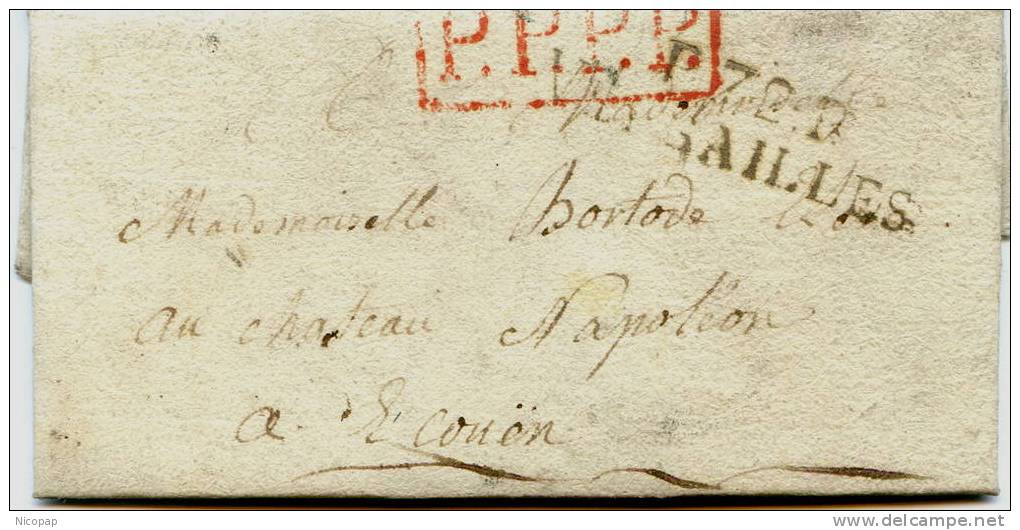 P.P.P.P.
P.72.P
AILLES
Mademoiselle
au chateau Napoléon
a Ecouën
Nicopap
www.delcampe.net